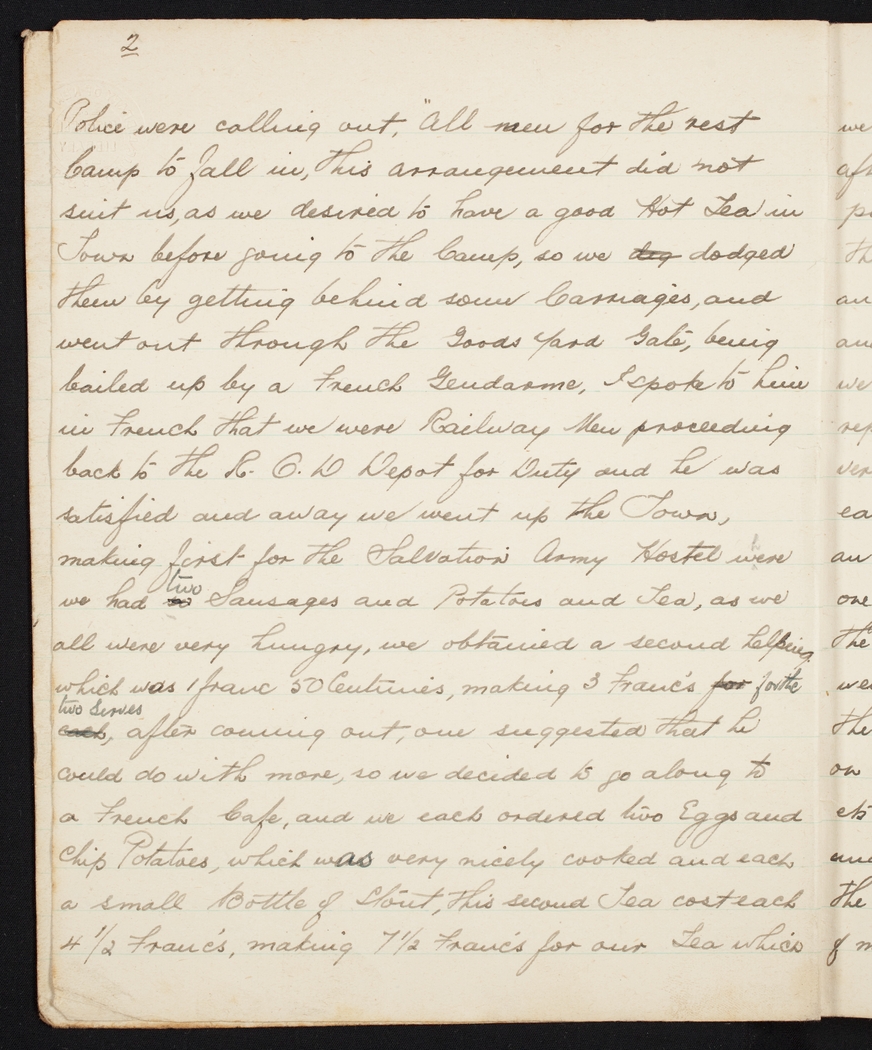 2
Police were calling out, "All men for the rest
Camp to fall in, this arrangement did not
suit us, as we desired to have a good Hot Tea in
Town before going to the Camp, so we dodged
them by getting behind some Carriages, and
went out through the Goods Yard Gate, being
bailed up by a French Gendarme, I spoke to him
in French that we were Railway Men proceeding
back to the R. O. D Depot for Duty and he was
satisfied and away we went up the Town,
making first for the Salvation Army Hostel were
two
we had Sausages and Potatoes and Tea, as we
all were very hungry, we obtained a second helping
which was 1 franc 50 Centimes, making 3 Franc's for for the
two Serves
each, after coming out, one suggested that he
could do with more, so we decided to go along to
a French Cafe, and we each ordered two Eggs and
Chip Potatoes, which was very nicely cooked and each
a small Bottle of Stout, this second Tea cost each
4 1/2 Franc's, making 7 1/2 Franc's for our Tea which
we
an
an
we
ea
an
one
the
wer
the
on
the
of m